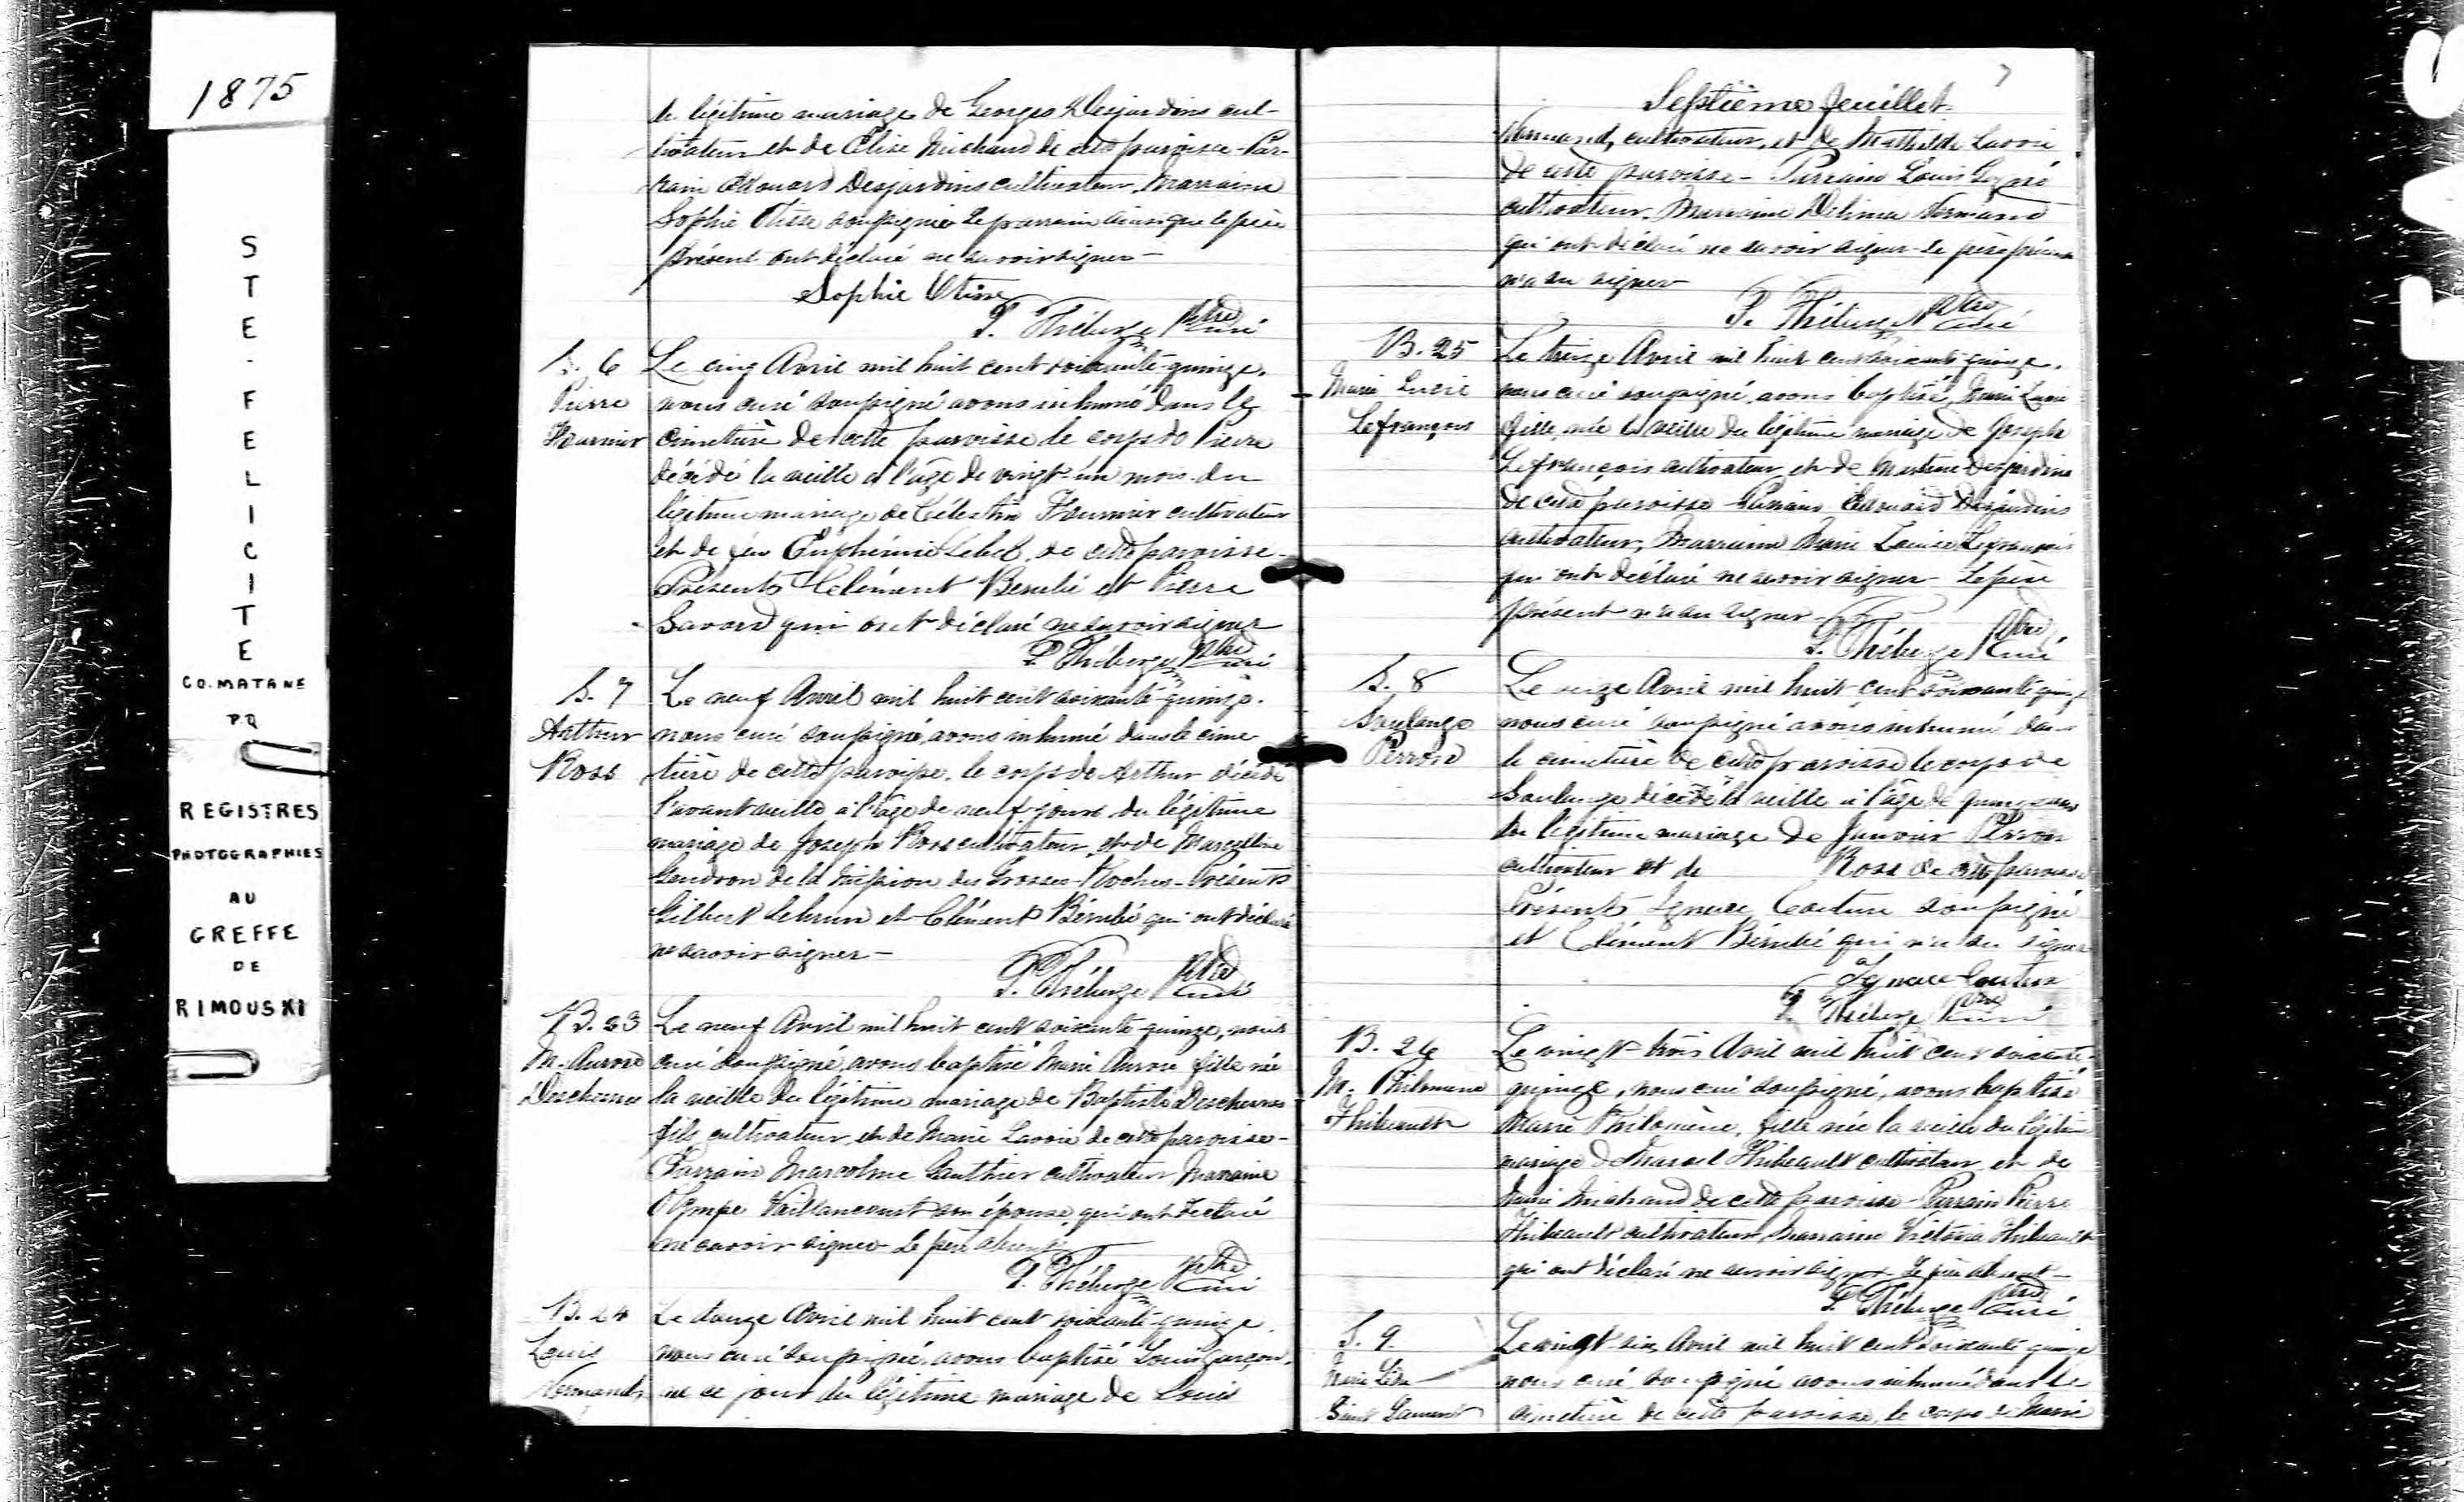 1875
STE-FELICITE
CO. MATANE
PQ
REGISTRES
PHOTOGRAPHIES
AU
GREFFE
DE
RIMOUSKI
le légitime mariage de Georges Desjardins cul-
tivateur et de Elise Michaud de cette paroisse - Par-
rain Edouard Desjardins cultivateur, Marraine
Sophie Otisse soussignée Le parrain ainsi que le père
présent ont déclaré ne savoir signer -
Sophie Otisse
P. Théberge Ptre Curé
S. 6
Pierre
Fournier
Le cinq Avril mil huit cent soixante-quinze,
nous curé soussigné avons inhumé dans le
cimetière de cette paroisse le corps de Pierre
décédé la veille à l'âge de vingt-un mois du
légitime mariage de Célestin Fournier cultivateur
et de feu Euphémie Lebel, de cette paroisse -
Présents Clément Berubé et Pierre
Savard qui ont déclaré ne savoir signer
P. Théberge Ptre Curé
S. 7
Arthur
Ross
Le neuf Avril mil huit cent soixante-quinze.
nous curé soussigné, avons inhumé dans le cime
tière de cette paroisse, le corps de Arthur décédé
l'avant veille à l'âge de neuf jours du légitime
mariage de Joseph Ross cultivateur, et de Marcelline
Gendron de la mission des Grosses-Roches - Présents
Gilbert Lebrun et Clément Bérubé qui ont déclaré
ne savoir signer -
P. Théberge Ptre Curé
B. 23
M. Aurore
Deschenes
Le neuf Avril mil huit cent soixante-quinze, nous
curé soussigné, avons baptisé Marie Aurore fille née
la veille du légitime mariage de Baptiste Deschenes
fils cultivateur, et de Marie Lavoie de cette paroisse -
Parrain Marcolme Gauthier cultivateur, Marraine
Olympe Vaillancourt son épouse, qui ont déclaré
ne savoir signer Le père absent
P. Théberge Ptre Curé
B. 24
Louis
Normand
Le douze Avril mil huit cent soixante-quinze,
nous curé soussigné, avons baptisé Louis garçon,
né ce jour du légitime mariage de Louis
7
Septième feuillet
Normand, cultivateur, et de Mathilde Lavoie
de cette paroisse - Parrain Louis
cultivateur, Marraine Délima Normand
qui ont déclaré ne savoir signer - Le père présent
n'a su signer
P. Théberge Ptre Curé
B. 25
Marie Lucie
Lefrançois
Le treize Avril mil huit cent soixante-quinze,
nous curé soussigné, avons baptisé, Marie Lucie
fille, née la veille du légitime mariage de Joseph
Lefrançois cultivateur, et de Desjardins
de cette paroisse - Parrain Edouard Desjardins
cultivateur, Marraine Marie Louise Lefrançois
qui ont déclaré ne savoir signer - Le père
présent n'a su signer -
P. Théberge Ptre Curé
S. 8
Soulange
Perron
Le seize Avril mil huit cent soixante quinze
nous curé soussigné avons inhumé dans
le cimetière de cette paroisse le corps de
Soulange décédé la veille à l'âge de
du légitime mariage de Janvier Perron
cultivateur et de Ross de cette paroisse
Présents Ignace Couture soussigné
et Clément Bérubé qui n'a su signer
Ignace Couture
P. Théberge Ptre Curé
B. 26
M. Philomene
Thibeault
Le vingt-trois Avril mil huit cent soixante-
quinze, nous curé soussigné, avons baptisé
Marie Philomène, fille née la veille du légitime
mariage de Marcel Thibeault cultivateur, et de
Marie Michaud de cette paroisse - Parrain Pierre
Thibeault cultivateur, Marraine Victoria Thibeault
qui ont déclaré ne savoir signer. Le père absent -
P. Théberge Ptre Curé
S. 9
Marie Léda
Saint Laurent
Le vingt-six Avril mil huit cent soixante quinze
nous curé soussigné avons inhumé dans le
cimetière de cette paroisse, le corps de Marie